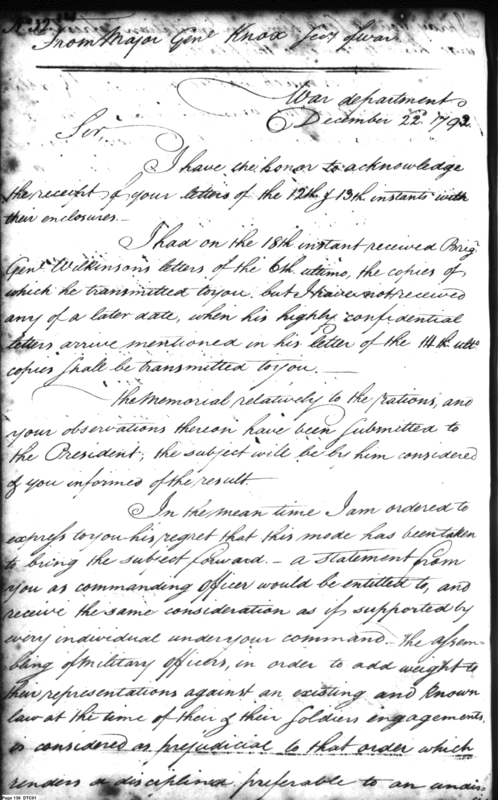 No. 12.
From Major Genl. Knox Secy of war
War department
December 22d. 1792.
Sir,
I have the honor to acknowledge
the receipt of your letters of the 12th & 13th instants with
their enclosures.—
I had on the 18th instant received Brig.
Genl. Wilkinson's letters of the 6th ultimo, the copies of
which he transmitted to you, but I have not received
any of a later date, when his highly confidential
letters arrive mentioned in his letter of the 14th ulto.
copies shall be transmitted to you.—
The Memorial relatively to the rations, and
your observations thereon have been submitted to
the President; the subject will be by him considered
& you informed of the result
In the mean time I am ordered to
express to you his regret that this mode has been taken
to bring the subject forward.— a statement from
you as commanding officer would be entitled to, and
receive the same consideration as if supported by
every individual under your command.— The assem-
bling of military officers, in order to add weight to
their representations against an existing and known
law at the time of their & their Soldiers engagements,
is considered as prejudicial to that order which
renders a disciplined preferable to an undis-
Page 136 DTC01